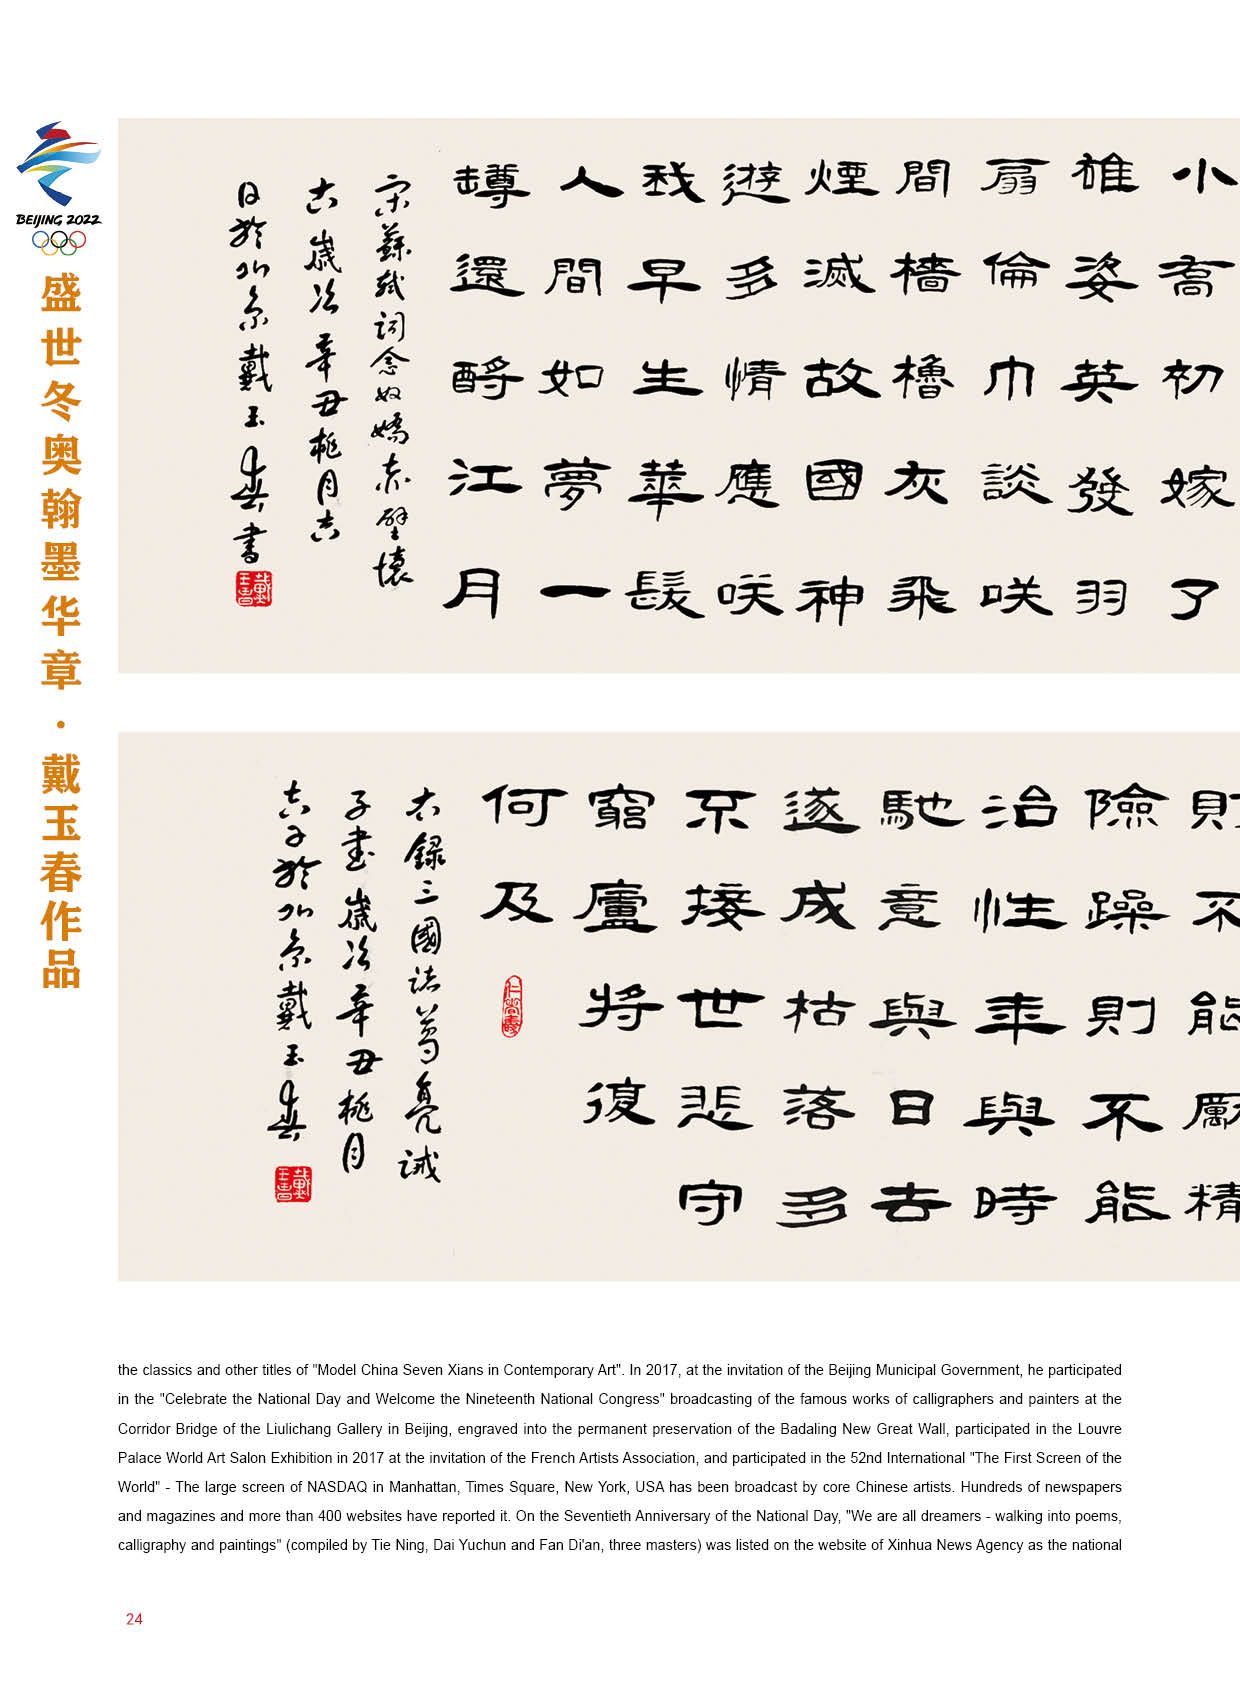 BEIJING 2022
盛世冬奥翰墨华章·戴玉春作品
小喬初嫁了
雄姿英發羽
扇倫巾談咲
間檣櫓灰飛
煙滅故國神
遊多情應咲
我早生華髮
人間如夢一
罇還酹江月
宋蘇軾詞念奴嬌赤壁懷
古歲次辛丑桃月吉
日於北京戴玉春書
戴玉春
則不能勵精
險躁則不能
治性年與時
馳意與日去
遂成枯落多
不接世悲守
窮廬將復
何及
仁者壽
右錄三國諸葛亮誡
子書歲次辛丑桃月
吉日於北京戴玉春
戴玉春
the classics and other titles of "Model China Seven Xians in Contemporary Art". In 2017, at the invitation of the Beijing Municipal Government, he participated
in the "Celebrate the National Day and Welcome the Nineteenth National Congress" broadcasting of the famous works of calligraphers and painters at the
Corridor Bridge of the Liulichang Gallery in Beijing, engraved into the permanent preservation of the Badaling New Great Wall, participated in the Louvre
Palace World Art Salon Exhibition in 2017 at the invitation of the French Artists Association, and participated in the 52nd International "The First Screen of the
World" - The large screen of NASDAQ in Manhattan, Times Square, New York, USA has been broadcast by core Chinese artists. Hundreds of newspapers
and magazines and more than 400 websites have reported it. On the Seventieth Anniversary of the National Day, "We are all dreamers - walking into poems,
calligraphy and paintings" (compiled by Tie Ning, Dai Yuchun and Fan Di'an, three masters) was listed on the website of Xinhua News Agency as the national
24